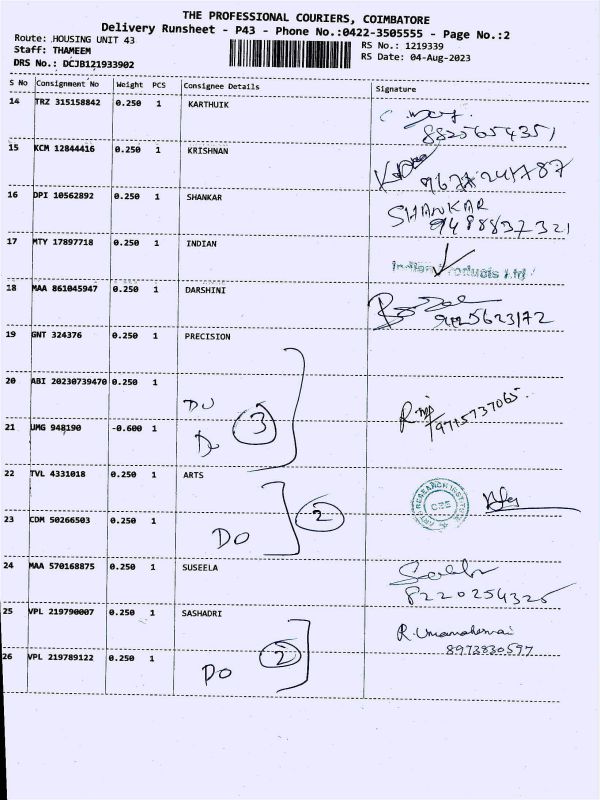 THE PROFESSIONAL COURIERS, COIMBATORE
Delivery Runsheet - P43 - Phone No.:0422-3505555 - Page No.:2
Route: HOUSING UNIT 43
RS No.: 1219339
Staff: THAMEEM
RS Date: 04-Aug-2023
DRS No.: DCJB121933902
S No Consignment No Weight PCS Consignee Details Signature
14 TRZ 315158842 0.250 1 KARTHUIK
8825654351
15 KCM 12844416 0.250 1 KRISHNAN
16 DPI 10562892 0.250 1 SHANKAR SHANKAR
9488837321
17 MTY 17897718 0.250 1 INDIAN
Indian Products Ltd
18 MAA 861045947 0.250 1 DARSHINI
19 GNT 324376 PRECISION
20 ABI 20230739470 0.250 1
DO
9715737065.
21 UMG 948190 -0.600 1
Do 3
22 TVL 4331018 0.250 1 ARTS
RESEARCH INSTITUTE
2
23 CDM 50266503 0.250 1
DO
24 MAA 570168875 0.250 1 SUSEELA
8220254325
25 VPL 219790007 0.250 1 SASHADRI
8973830597
2
26 VPL 219789122 0.250 1
DO